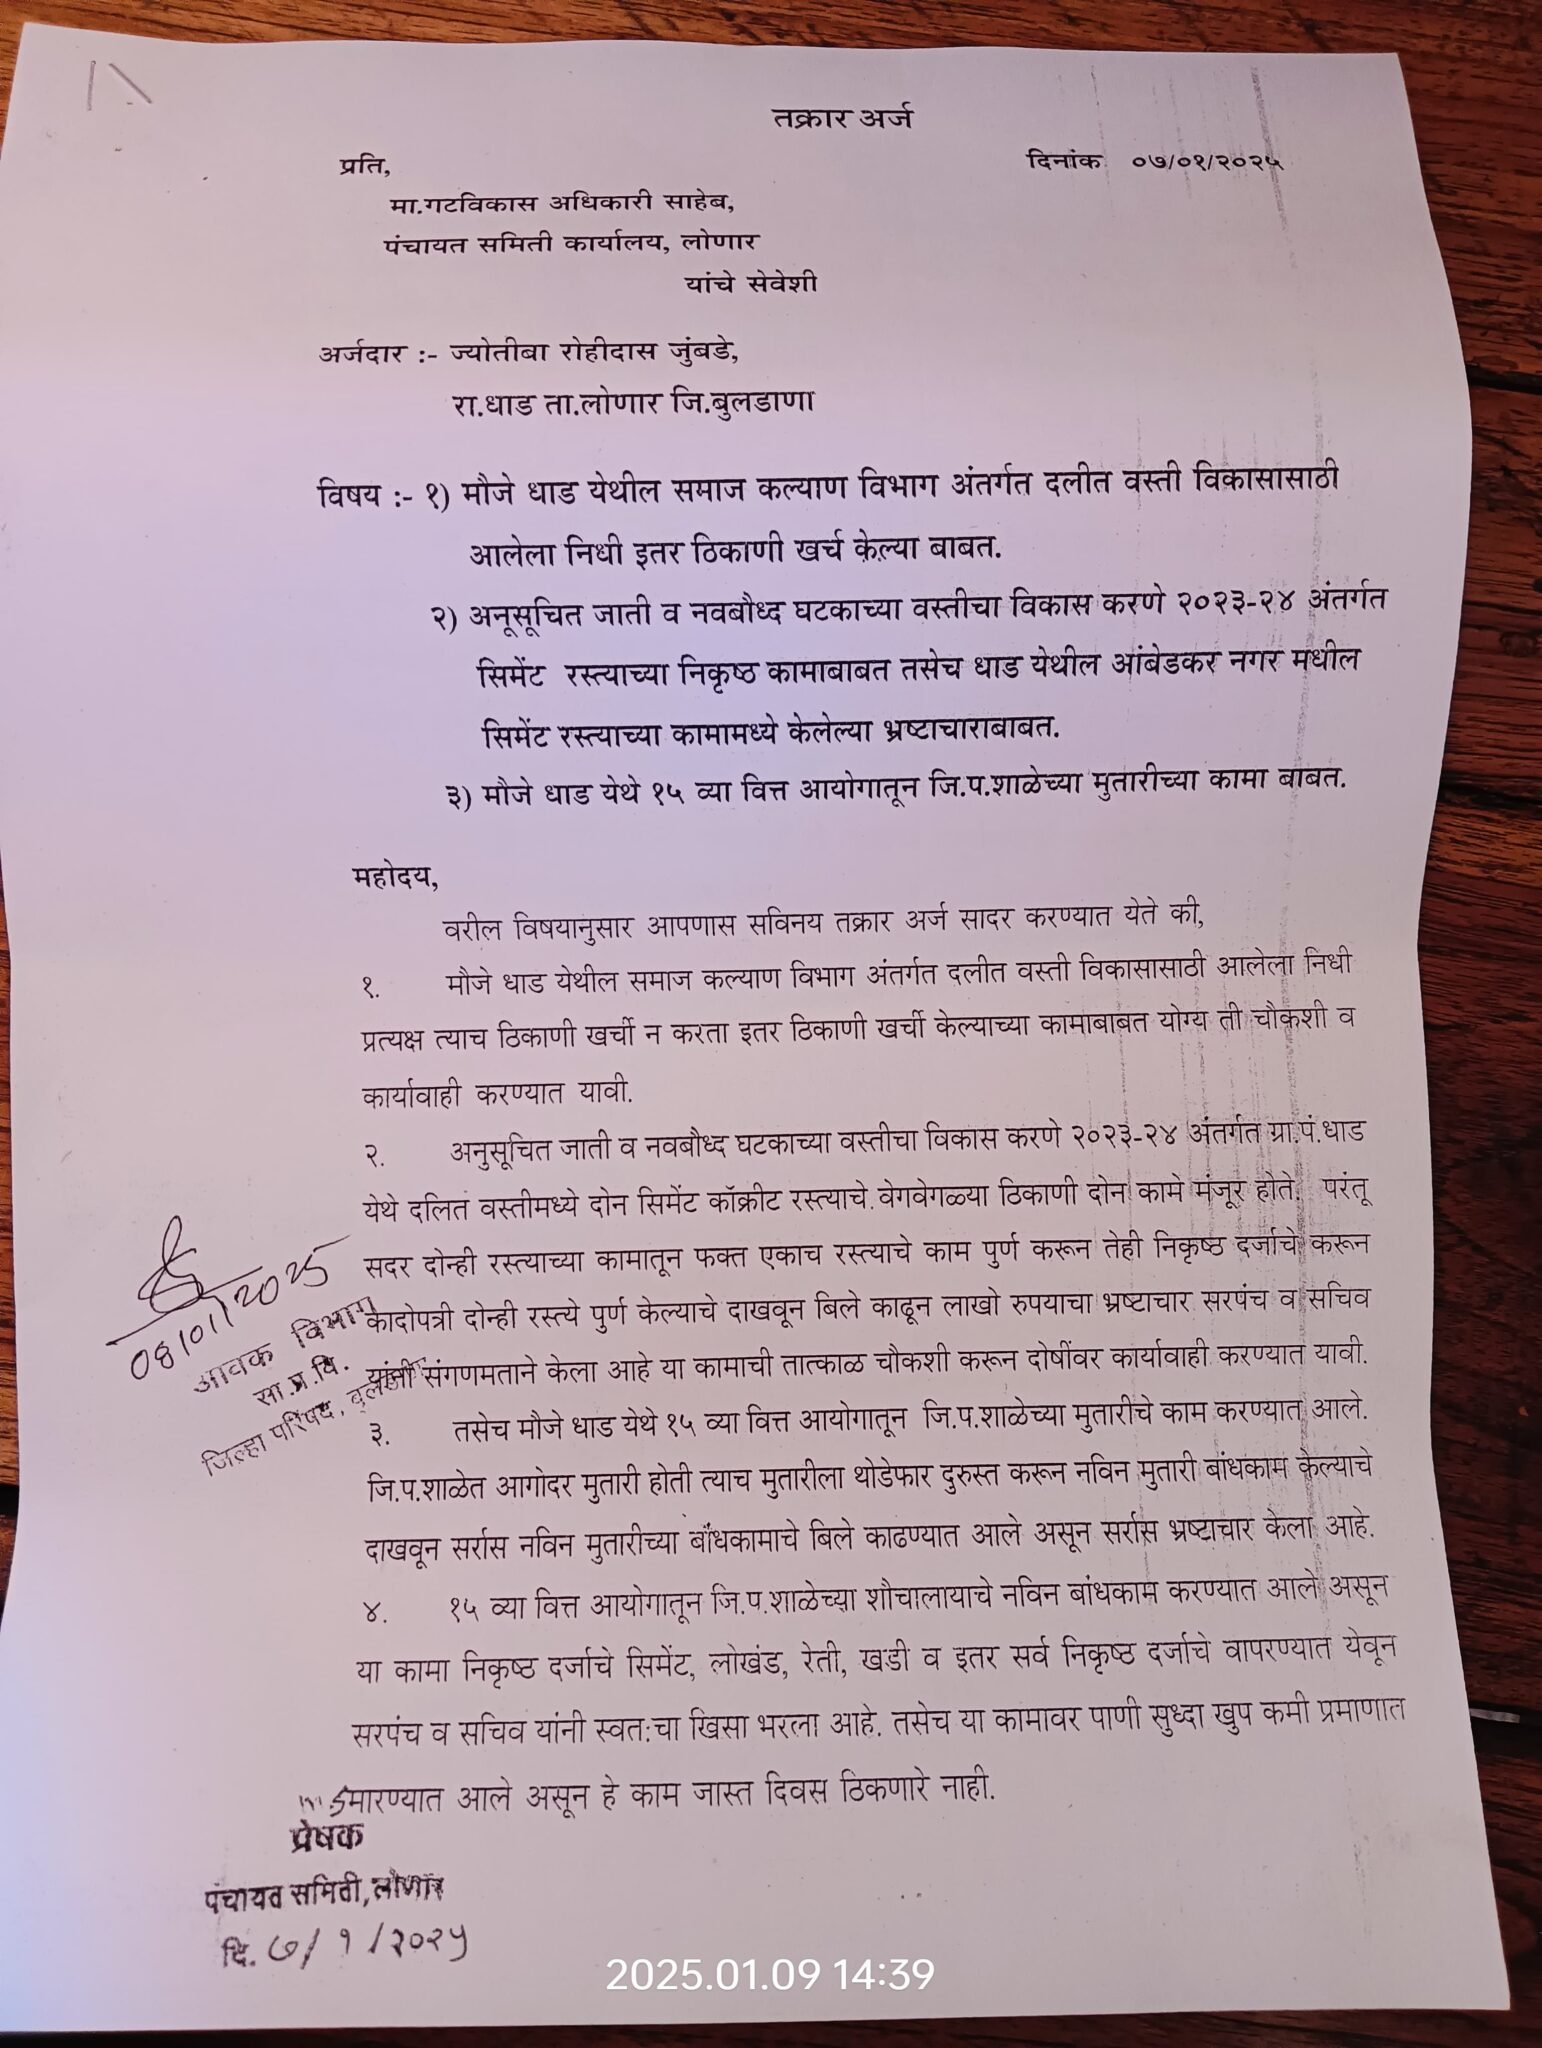 तक्रार अर्ज
प्रति,
दिनांक ०७/०१/२०२५
मा.गटविकास अधिकारी साहेब,
पंचायत समिती कार्यालय, लोणार
यांचे सेवेशी
अर्जदार :- ज्योतीबा रोहीदास जुंबडे,
रा.धाड ता.लोणार जि.बुलडाणा
विषय :- १) मौजे धाड येथील समाज कल्याण विभाग अंतर्गत दलीत वस्ती विकासासाठी
आलेला निधी इतर ठिकाणी खर्च केल्या बाबत.
२) अनूसूचित जाती व नवबौध्द घटकाच्या वस्तीचा विकास करणे २०२३-२४ अंतर्गत
सिमेंट रस्त्याच्या निकृष्ठ कामाबाबत तसेच धाड येथील आंबेडकर नगर मधील
सिमेंट रस्त्याच्या कामामध्ये केलेल्या भ्रष्टाचाराबाबत.
३) मौजे धाड येथे १५ व्या वित्त आयोगातून जि.प.शाळेच्या मुतारीच्या कामा बाबत.
महोदय,
वरील विषयानुसार आपणास सविनय तक्रार अर्ज सादर करण्यात येते की,
१. मौजे धाड येथील समाज कल्याण विभाग अंतर्गत दलीत वस्ती विकासासाठी आलेला निधी
प्रत्यक्ष त्याच ठिकाणी खर्ची न करता इतर ठिकाणी खर्ची केल्याच्या कामाबाबत योग्य ती चौकशी व
कार्यावाही करण्यात यावी.
२. अनुसूचित जाती व नवबौध्द घटकाच्या वस्तीचा विकास करणे २०२३-२४ अंतर्गत ग्रा.पं.धाड
येथे दलित वस्तीमध्ये दोन सिमेंट कॉक्रीट रस्त्याचे वेगवेगळ्या ठिकाणी दोन कामे मंजूर होते. परंतू
सदर दोन्ही रस्त्याच्या कामातून फक्त एकाच रस्त्याचे काम पुर्ण करून तेही निकृष्ठ दर्जाचे करून
कादोपत्री दोन्ही रस्त्ये पुर्ण केल्याचे दाखवून बिले काढून लाखो रुपयाचा भ्रष्टाचार सरपंच व सचिव
यांनी संगणमताने केला आहे या कामाची तात्काळ चौकशी करून दोषींवर कार्यावाही करण्यात यावी.
08/01/2025
आवक विभाग
सा.प्र.वि.
जिल्हा परिषद, बुलडाणा
३. तसेच मौजे धाड येथे १५ व्या वित्त आयोगातून जि.प.शाळेच्या मुतारीचे काम करण्यात आले.
जि.प.शाळेत आगोदर मुतारी होती त्याच मुतारीला थोडेफार दुरुस्त करून नविन मुतारी बांधकाम केल्याचे
दाखवून सर्रास नविन मुतारीच्या बांधकामाचे बिले काढण्यात आले असून सर्रास भ्रष्टाचार केला आहे.
४. १५ व्या वित्त आयोगातून जि.प.शाळेच्या शौचालायाचे नविन बांधकाम करण्यात आले असून
या कामा निकृष्ठ दर्जाचे सिमेंट, लोखंड, रेती, खडी व इतर सर्व निकृष्ठ दर्जाचे वापरण्यात येवून
सरपंच व सचिव यांनी स्वत:चा खिसा भरला आहे. तसेच या कामावर पाणी सुध्दा खुप कमी प्रमाणात
मारण्यात आले असून हे काम जास्त दिवस ठिकणारे नाही.
प्रेषक
पंचायत समिती, लोणार
दि. ७/१/२०२५
2025.01.09 14:39